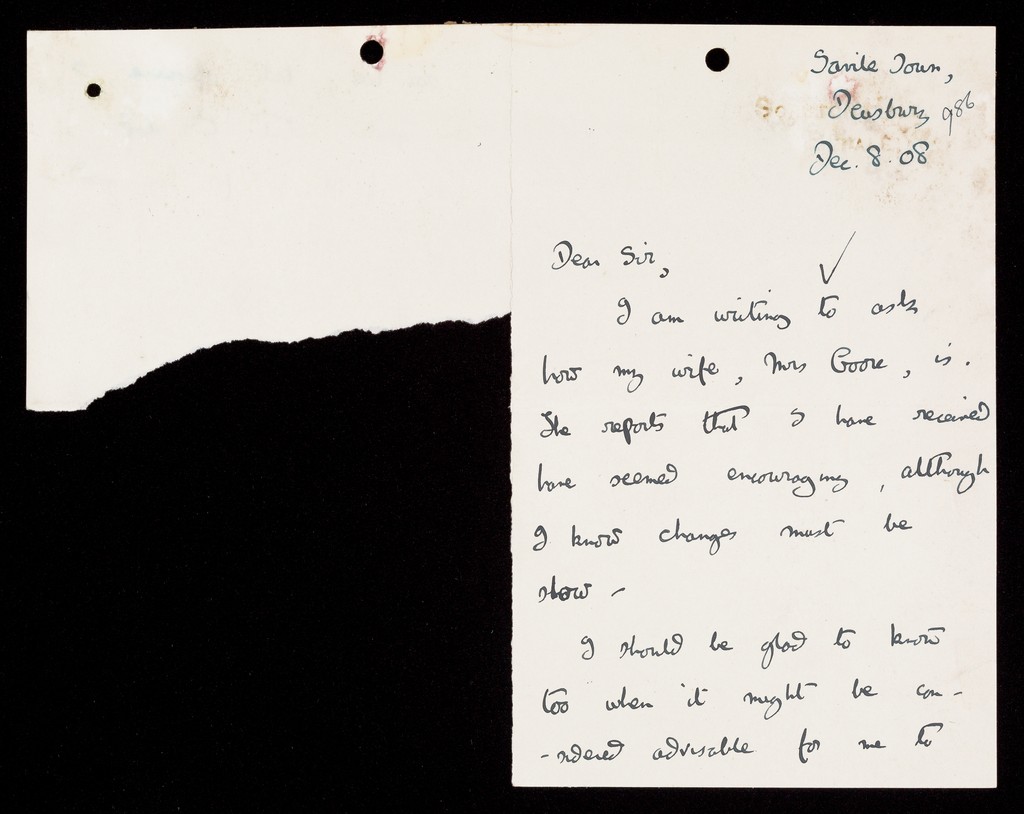 Savile Town,
Dewsbury 986
Dec. 8. 08
Dear Sir,
I am writing to ask
how my wife, Mrs Goore, is.
The reports that I have received
have seemed encouraging, although
I know changes must be
slow -
I should be glad to know
too when it might be con-
-sidered advisable for me to